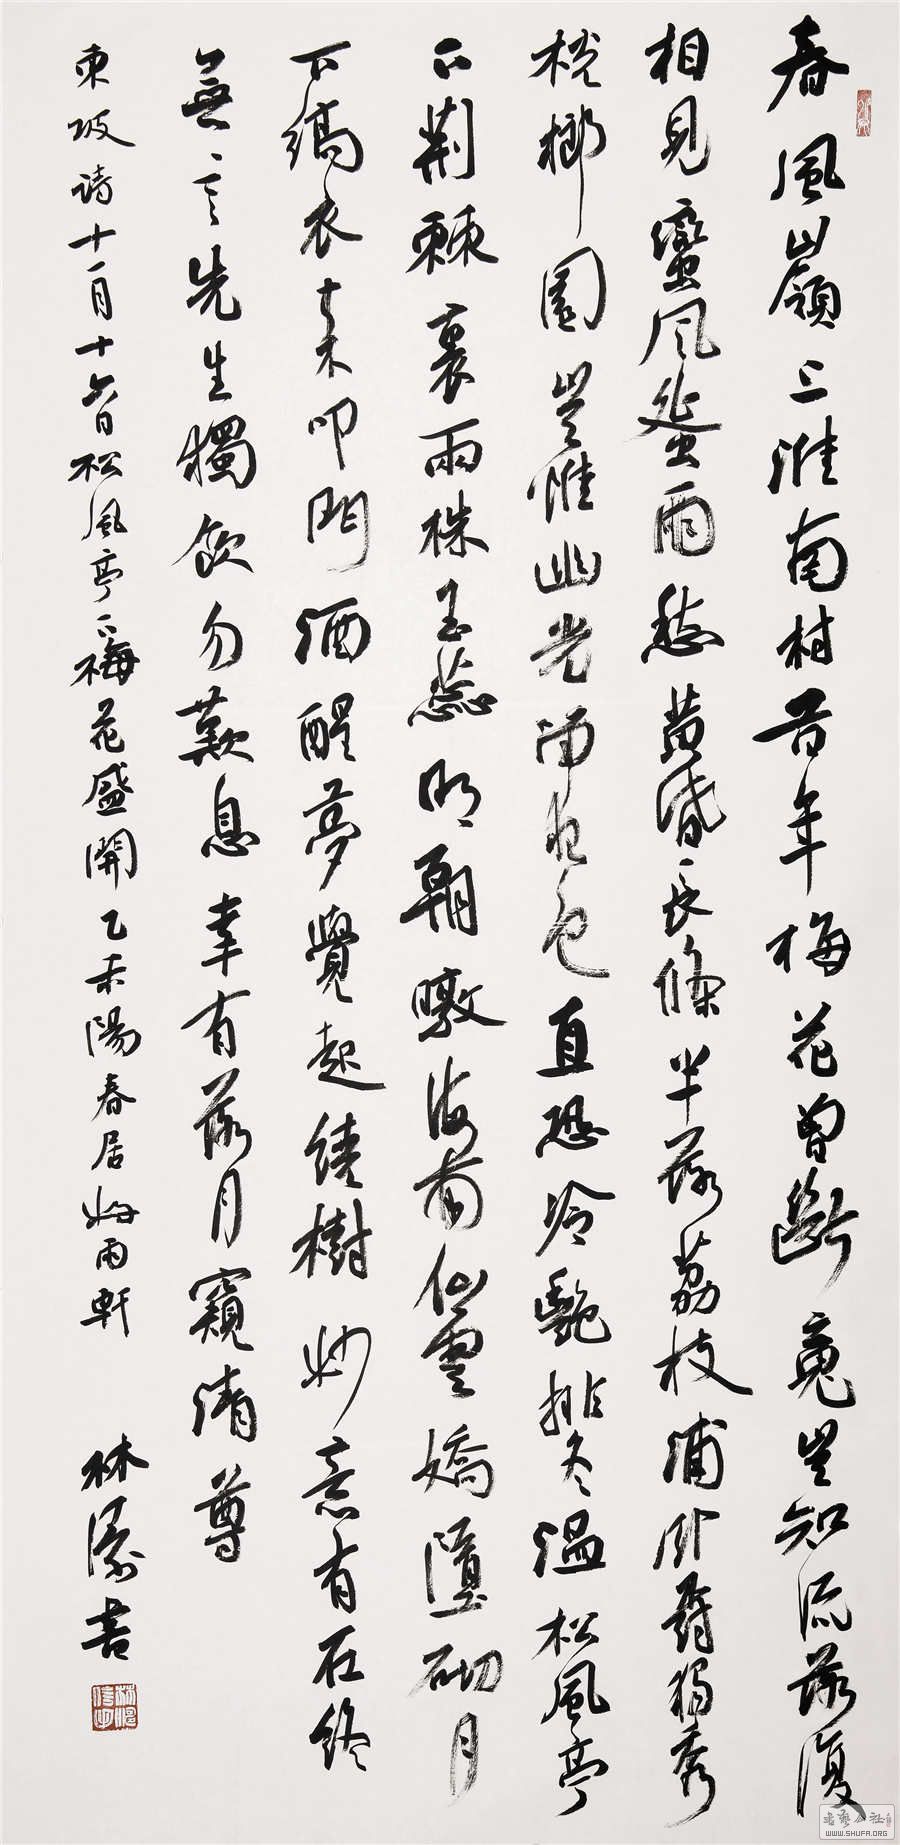 春風嶺上淮南村昔年梅花曾斷魂豈知流落復
相見蠻風蜑雨愁黃昏長條半落荔枝浦卧樹獨秀
桄榔園豈惟幽光留夜色直恐冷艷排冬溫松風亭
下荊棘裏兩株玉蕊明朝暾海南仙雲嬌墮砌月
下縞衣來叩門酒醒夢覺起繞樹妙意有在終
無言先生獨飲勿歎息幸有落月窺清尊
東坡詩十一月十六日松風亭下梅花盛開乙未陽春居好雨軒 林濤書
WWW.SHUFA.ORG